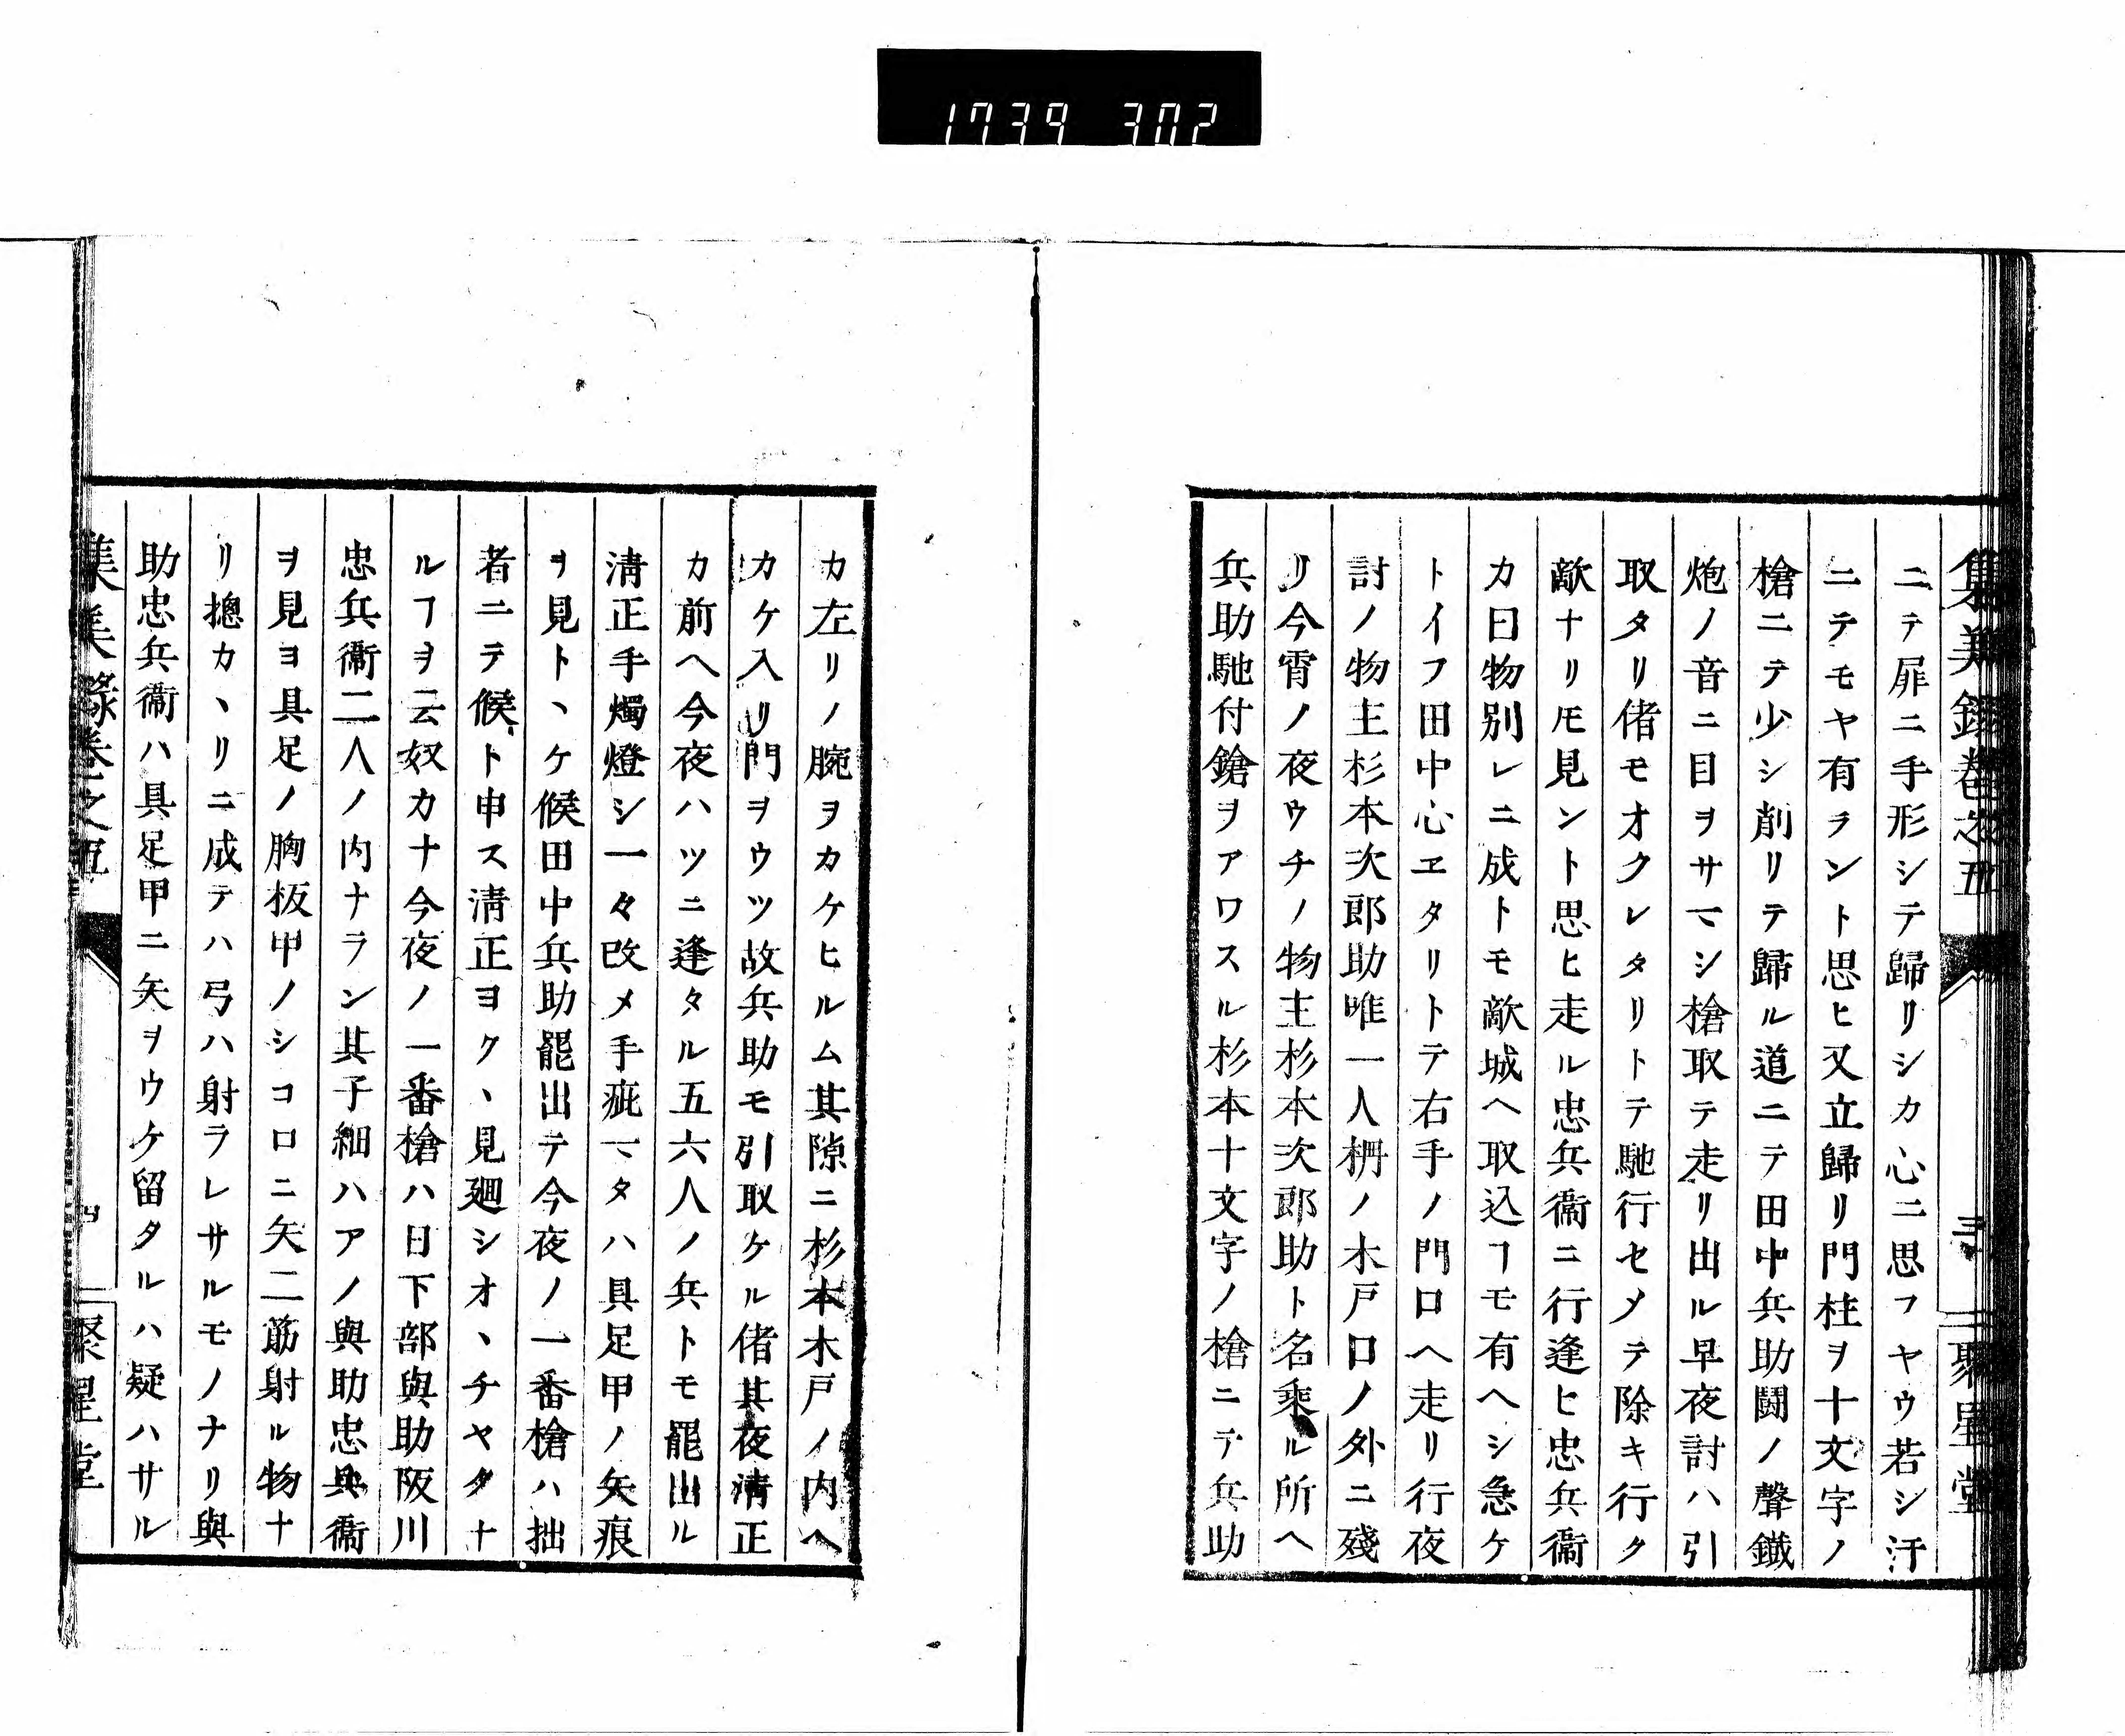 1739 302
集美録巻之五
三
聚星堂
ニテ扉ニ手形シテ歸リシカ心ニ思フヤウ若シ汗
ニテモヤ有ラント思ヒ又立歸リ門柱ヲ十文字ノ
槍ニテ少シ削リテ歸ル道ニテ田中兵助鬪ノ聲鐵
炮ノ音ニ目ヲサマシ槍取テ走リ出ル早夜討ハ引
取タリ偖モオクレタリトテ馳行セメテ除キ行ク
敵ナリモ見ント思ヒ走ル忠兵衞ニ行逢ヒ忠兵衞
カ曰物別レニ成トモ敵城ヘ取込ヿモ有ヘシ急ケ
トイフ田中心エタリトテ右手ノ門口ヘ走リ行夜
討ノ物主杉本次郎助唯一人柵ノ木戸口ノ外ニ殘
リ今宵ノ夜ウチノ物主杉本次郎助ト名乘ル所ヘ
兵助馳付鎗ヲアワスル杉本十文字ノ槍ニテ兵助
カ左リノ腕ヲカケヒルム其隙ニ杉本木戸ノ内ヘ
カケ入リ門ヲウツ故兵助モ引取ケル偖其夜淸正
カ前ヘ今夜ハツニ逢タル五六人ノ兵トモ罷出ル
淸正手燭燈シ一々改メ手疵マタハ具足甲ノ矢痕
ヲ見トヽケ候田中兵助罷出テ今夜ノ一番槍ハ拙
者ニテ候ト申ス淸正ヨクヽ見廻シオヽチヤタナ
ルヿヲ云奴カナ今夜ノ一番槍ハ日下部與助阪川
忠兵衞二人ノ内ナラン其子細ハアノ與助忠兵衞
ヲ見ヨ具足ノ胸板甲ノシコロニ矢二筋射ル物ナ
リ摠カヽリニ成テハ弓ハ射ラレサルモノナリ與
助忠兵衞ハ具足甲ニ矢ヲウケ留タルハ疑ハサル
集美録巻之五
四
聚星堂